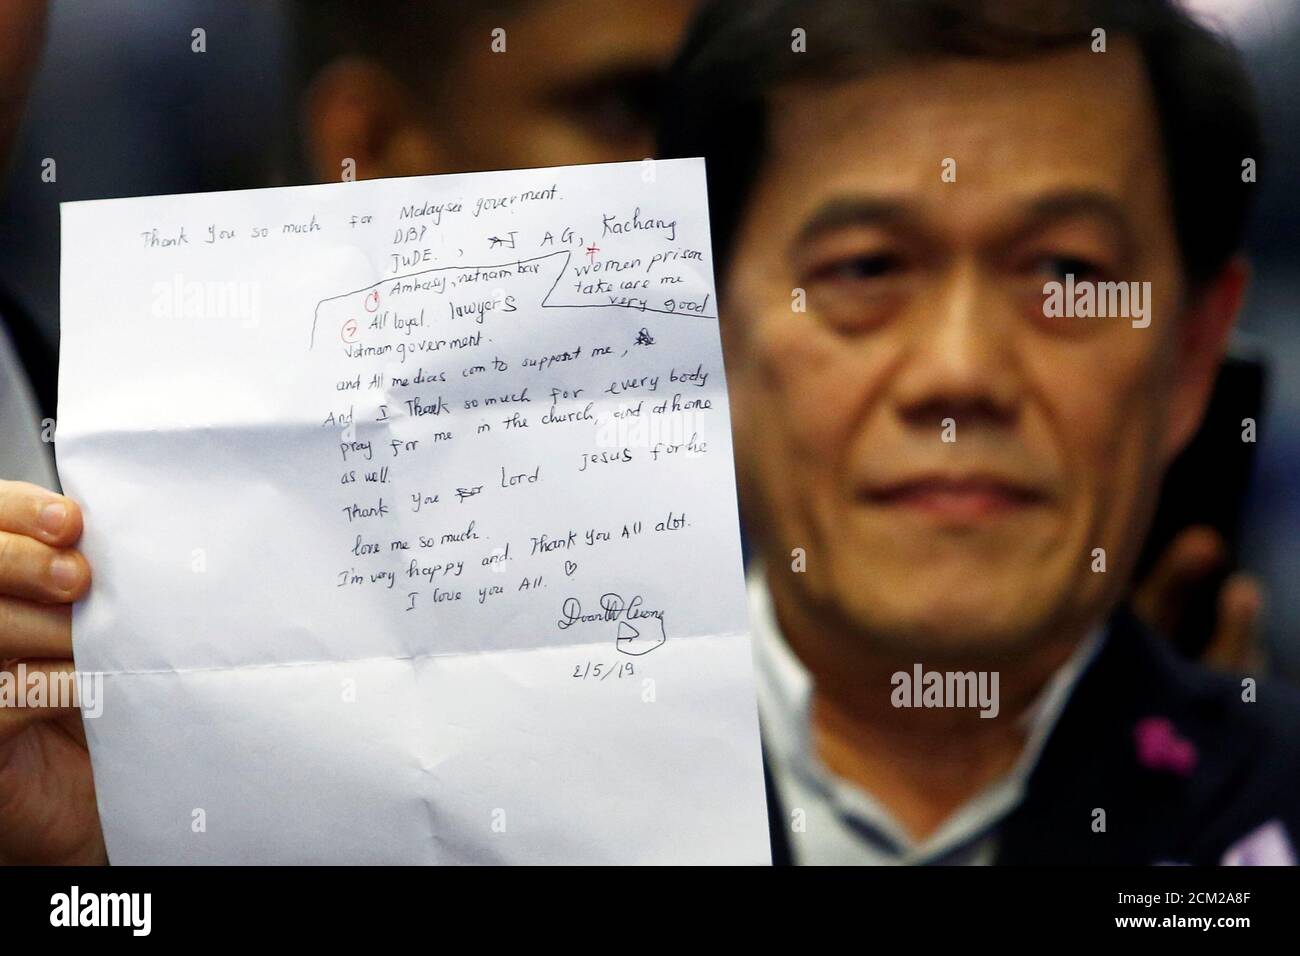 Thank You so much for Malaysei goverment.
DBP
JUDE. , AG, Kachang
women prison
take care me
very good
① Ambasy, vetnam bar
② All loyal. lawyers
Vetnam goverment.
and All medias com to support me,
And I Thank so much for every body
pray for me in the church, and at home
as well.
Thank You for Lord Jesus for he
love me so much.
I'm very happy and. Thank You All alot.
I love you All. ♡
Doan Thi Huong
2/5/19
alamy
Image ID: 2CM2A8F
www.alamy.com